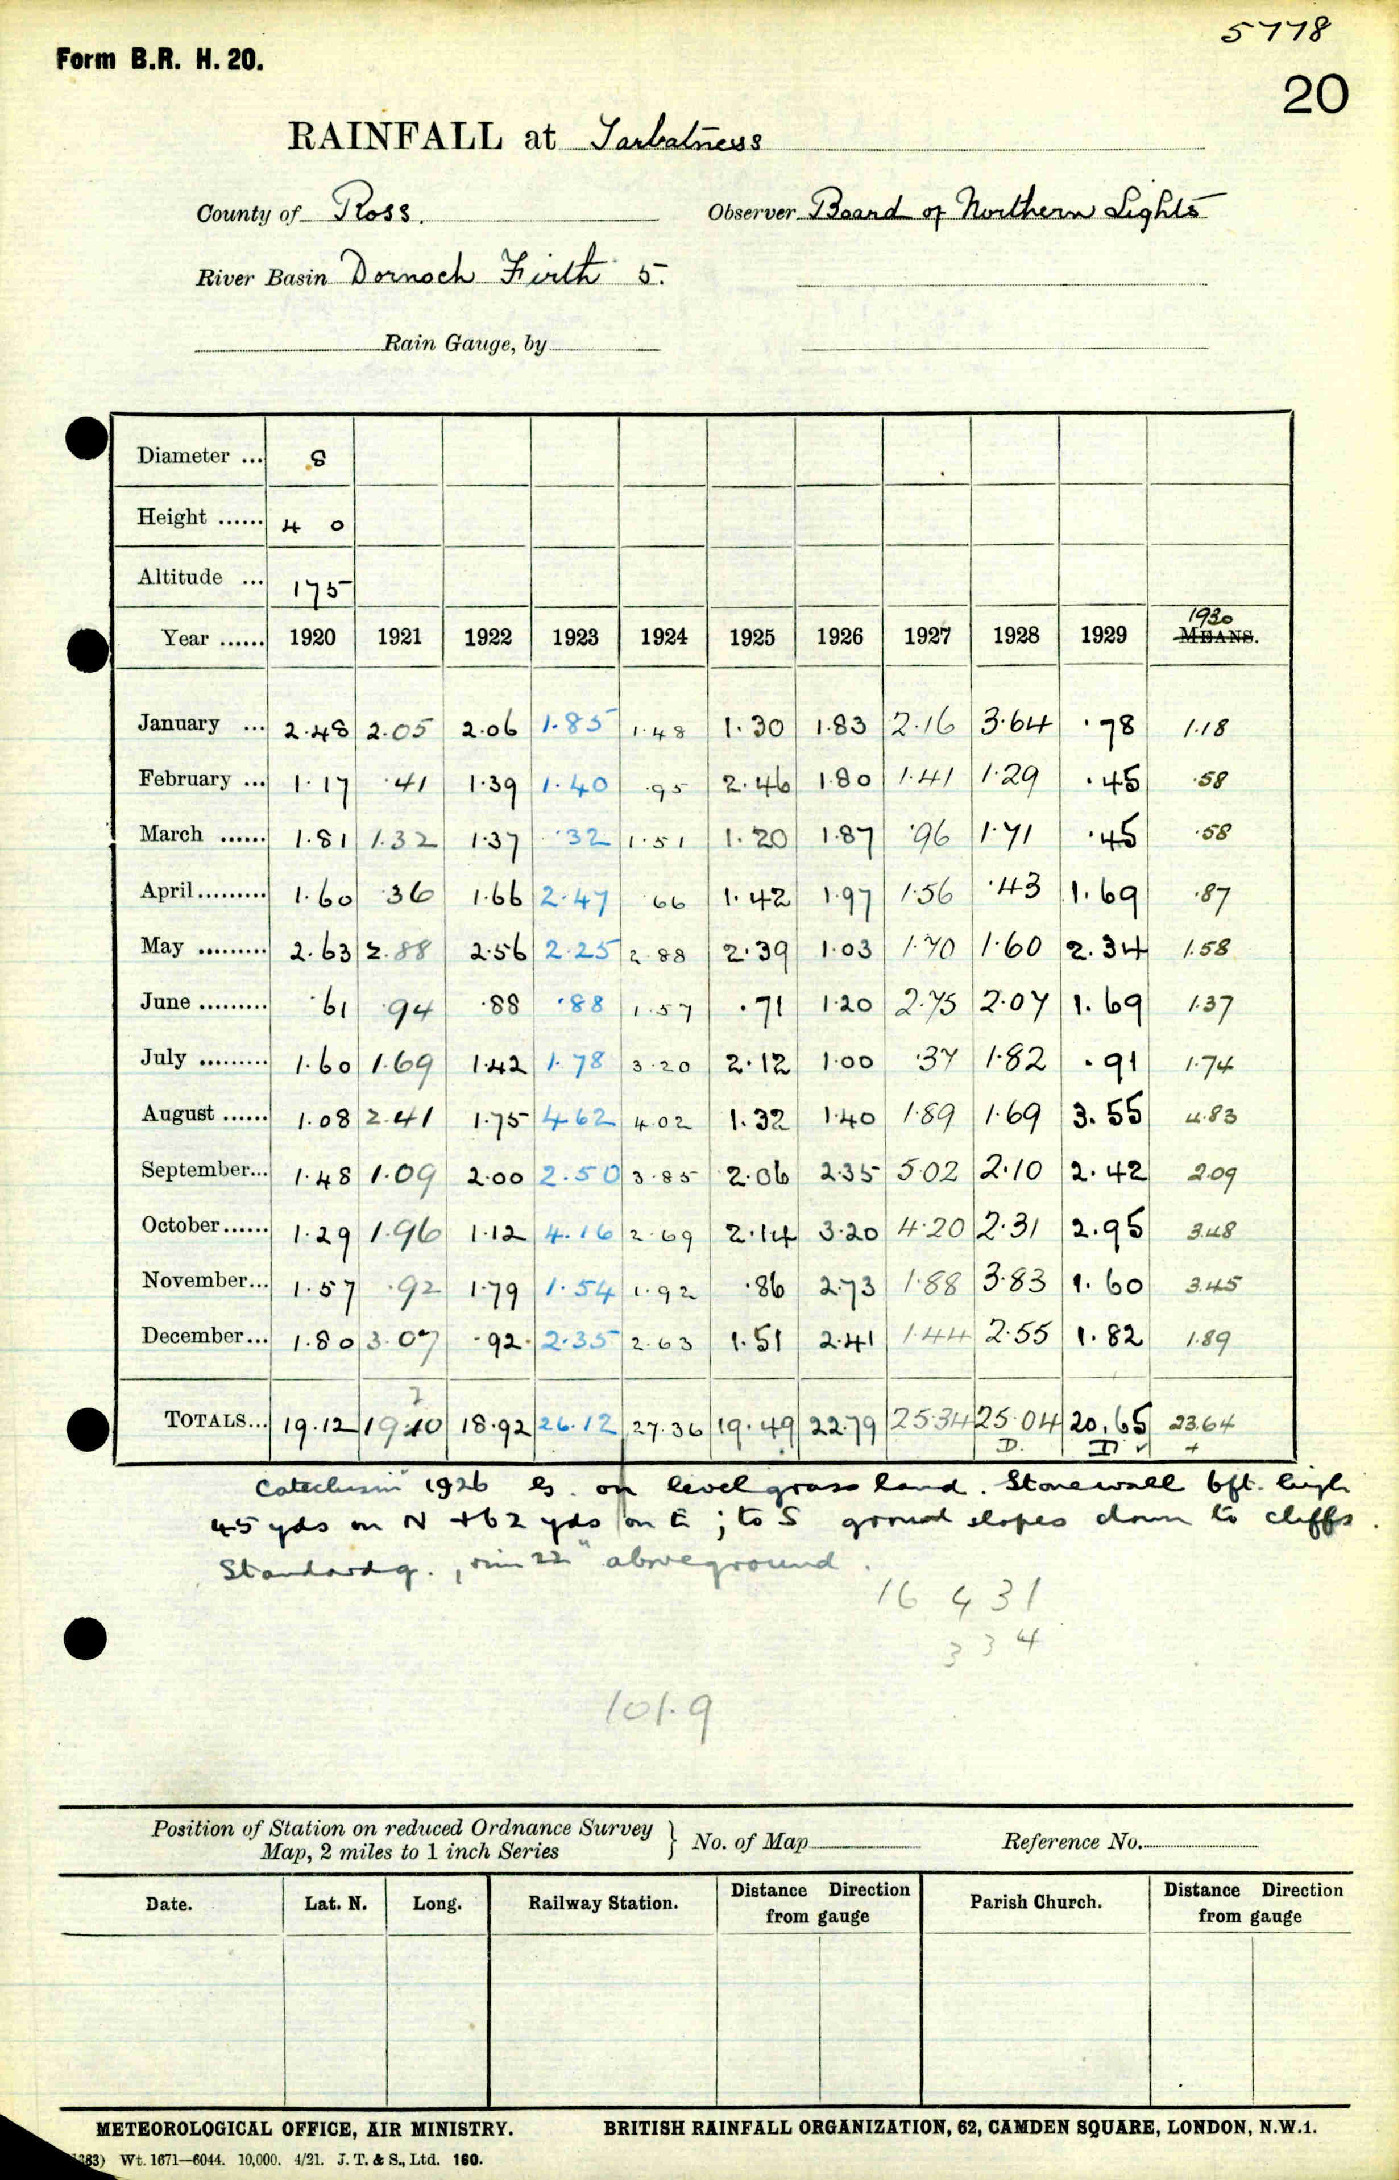 5778
Form B.R. H. 20.
20
RAINFALL at Tarbatness
County of Ross. Observer Board of Northern Lights
River Basin Dornoch Firth 5.
Rain Gauge, by
Diameter ... 8
Height ...... 4 0
Altitude ... 175
1930
Year ...... 1920 1921 1922 1923 1924 1925 1926 1927 1928 1929 MEANS.
January ... 2.48 2.05 2.06 1.85 1.48 1.30 1.83 2.16 3.64 .78 1.18
February ... 1.17 .41 1.39 1.40 .95 2.46 1.80 1.41 1.29 .45 .58
March ...... 1.81 1.32 1.37 .32 1.51 1.20 1.87 .96 1.71 .45 .58
April ......... 1.60 .36 1.66 2.47 .66 1.42 1.97 1.56 .43 1.69 .87
May ......... 2.63 2.88 2.56 2.25 2.88 2.39 1.03 1.70 1.60 2.34 1.58
June ......... .61 .94 .88 .88 1.57 .71 1.20 2.75 2.07 1.69 1.37
July ......... 1.60 1.69 1.42 1.78 3.20 2.12 1.00 .37 1.82 .91 1.74
August ...... 1.08 2.41 1.75 4.62 4.02 1.32 1.40 1.89 1.69 3.55 4.83
September... 1.48 1.09 2.00 2.50 3.85 2.06 2.35 5.02 2.10 2.42 2.09
October...... 1.29 1.96 1.12 4.16 2.69 2.14 3.20 4.20 2.31 2.95 3.48
November... 1.57 .92 1.79 1.54 1.92 .86 2.73 1.88 3.83 1.60 3.45
December... 1.80 3.07 .92 2.35 2.63 1.51 2.41 1.44 2.55 1.82 1.89
TOTALS... 19.12 19.10 18.92 26.12 27.36 19.49 22.79 25.34 25.04 20.65 23.64
1926 G. on level grass land. Stonewall 6ft. high
45 yds on N + 62 yds on E ; to S ground slopes down to cliffs.
Standard g., rim 22" above ground.
16 4 31
3 3 4
101.9
Position of Station on reduced Ordnance Survey
Map, 2 miles to 1 inch Series } No. of Map Reference No.
Date. Lat. N. Long. Railway Station. Distance Direction from gauge Parish Church. Distance Direction from gauge
METEOROLOGICAL OFFICE, AIR MINISTRY. BRITISH RAINFALL ORGANIZATION, 62, CAMDEN SQUARE, LONDON, N.W.1.
83) Wt. 1671—6044. 10,000. 4/21. J. T. & S., Ltd. 160.